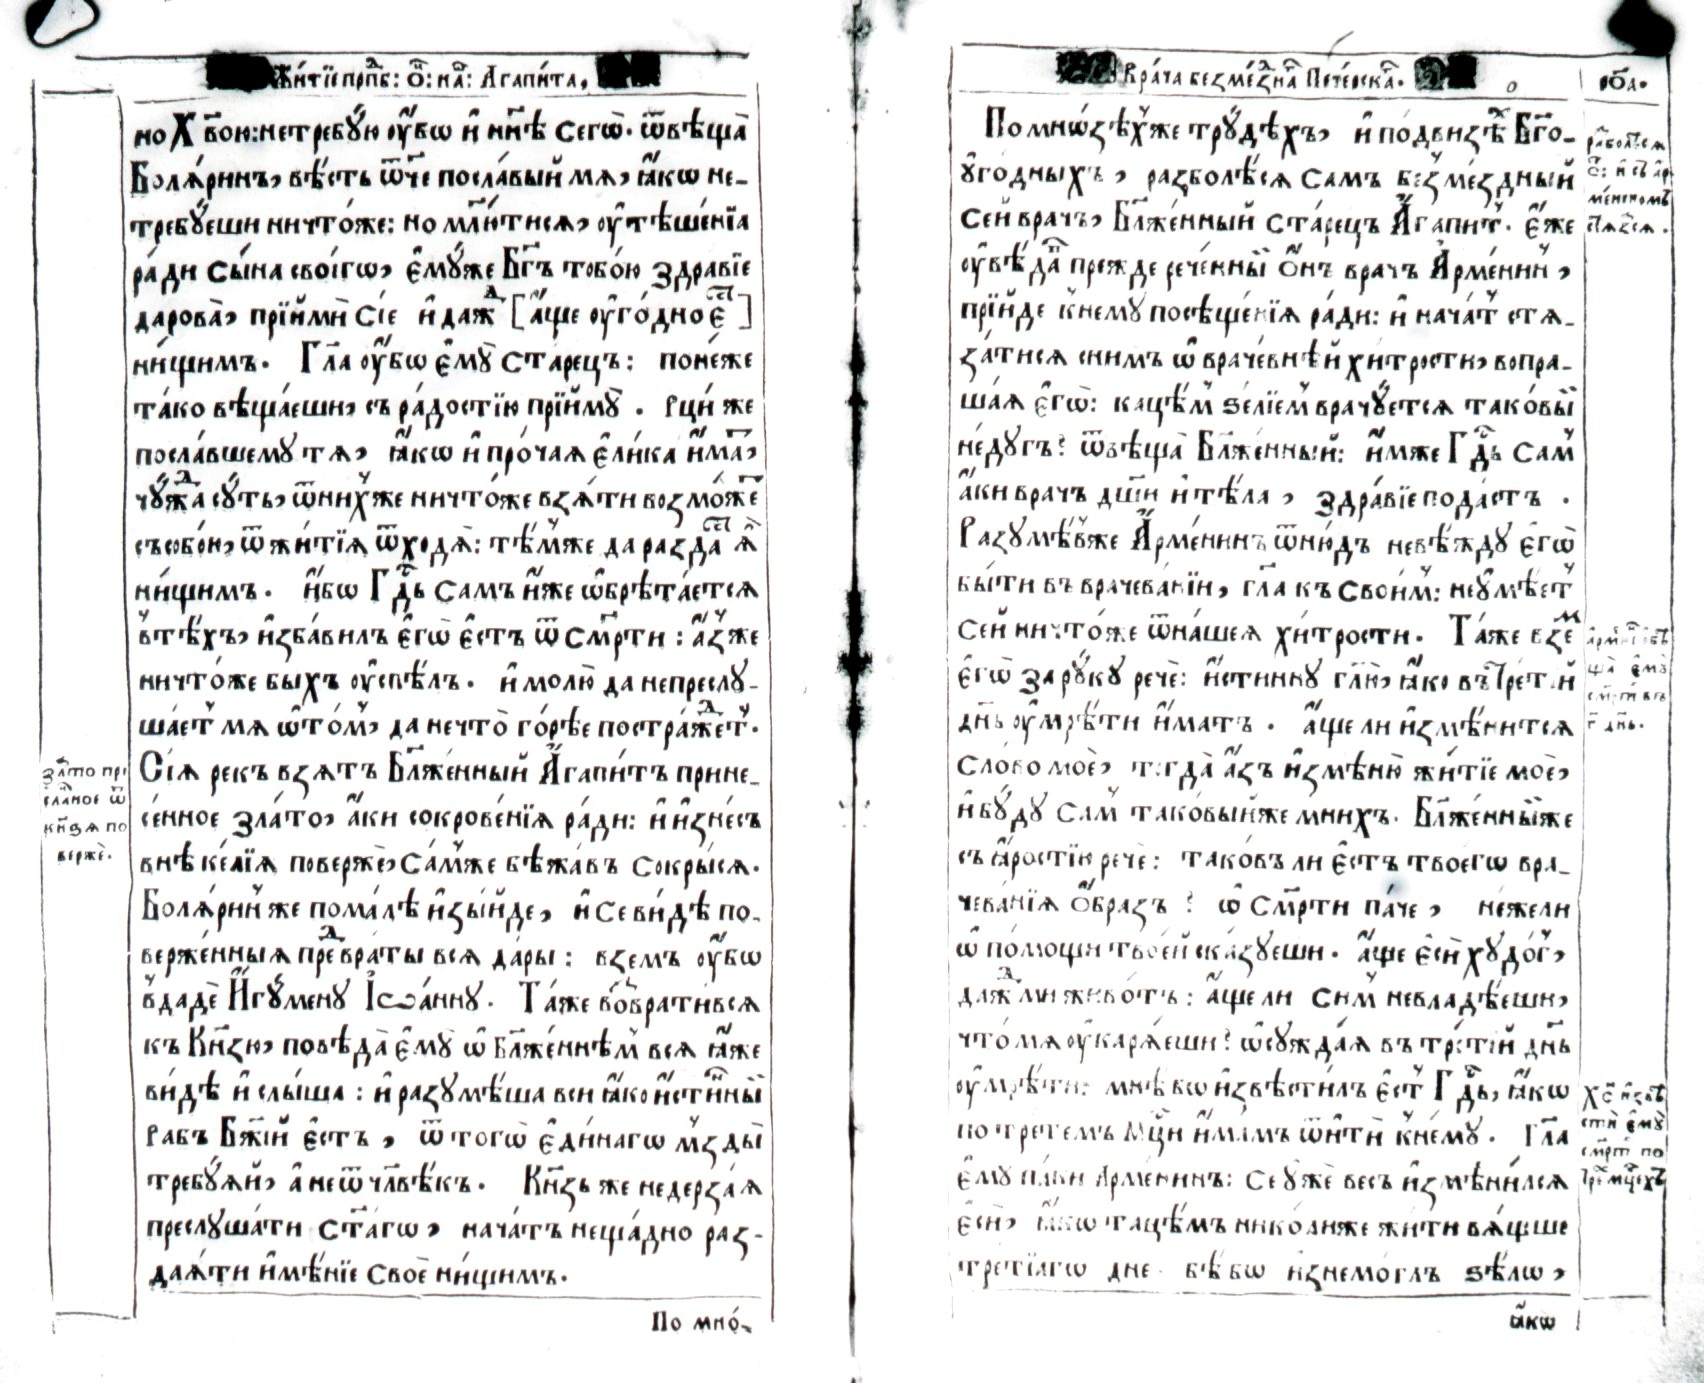 Житїе прпⷣб: ѻ҃: на: Агапи́та,
но Хⷭ҇вою: нетребꙋ́ю ᲂу҆́бѡ и҆ нн҃ѣ сегѡ̀. ѿвѣща̀
Болѧ́ринъ, вѣ́сть ѿч҃е посла́вый мѧ, ꙗ҆́кѡ не-
требꙋ́еши ничто́же: но мл҃ю́тисѧ, ᲂу҆тѣше́нїѧ
ра́ди сы́на своегѡ̀, є҆мꙋ́же Бг҃ъ тобо́ю здра́вїе
дарова̀, прїимѝ сїѐ и҆ даⷤ [а҆́ще ᲂу҆го́дно є҆́сть]
ни́щимъ. Гл҃а ᲂу҆́бѡ є҆мꙋ̀ ста́рецъ: поне́же
та́ко вѣща́еши, съ ра́достїю прїимꙋ̀. рцы́ же
посла́вшемꙋ тѧ, ꙗ҆́кѡ и҆ про́чаѧ є҆ли́ка и҆́ма,
чꙋ́жда сꙋ́ть, ѿ ни́хже ничто́же взѧ́ти возмо́же
съ собо́ю, ѿ житїѧ̀ ѿходѧ̀: тѣ́мже да разда́стъ ѧ҆̀
ни́щимъ. и҆́бѡ Гдⷭ҇ь самъ и҆́же ѡ҆брѣта́етсѧ
в̾ тѣ́хъ, и҆зба́вилъ є҆гѡ̀ є҆́стъ ѿ см҃рти: а҆́зже
ничто́же быхъ ᲂу҆спѣ́лъ. и҆ молю̀ да непреслꙋ-
ша́етъ мѧ ѡ҆ то́мъ, да нечто̀ го́рѣе постра́ждетъ.
Сїѧ̀ рекъ взѧ́тъ Блⷤе́нный А҆гапи́тъ прине-
се́нное зла́то, а҆́ки сокрове́нїѧ ра́ди: и҆ и҆зне́съ
внѣ ке́лїѧ повержѐ, са́мже бѣжа́въ сокры́сѧ.
Болѧ́ринже пома́лѣ и҆зы́йде, и҆ се ви́дѣ по-
ве́рженныѧ преⷣ враты̀ всѧ да́ры: вземъ ᲂу҆́бѡ
в̾дадѐ И҆гꙋ́менꙋ І҆ѡа́ннꙋ. Та́же возврати́всѧ
къ Кнѧ́зю, повѣ́да є҆мꙋ̀ ѡ҆ Блⷤе́ннѣмъ всѧ ꙗ҆́же
ви́дѣ и҆ слы́ша: и҆ разꙋмѣ́ша вси ꙗ҆́ко и҆́стинный
рабъ Бж҃їй є҆́стъ, ѿ тогѡ̀ є҆ди́нагѡ мзды̀
требꙋ́ѧй, а҆ не ѿ чл҃вѣ́къ. Кнѧ́зь же недерза́ѧ
преслꙋша́ти ст҃а́гѡ, нача́тъ неща́дно раз-
даѧ́ти и҆мѣ́нїе своѐ ни́щимъ.
зла́то при
сланое ѿ
кнѧ́зѧ по
вержѐ.
По мно́-
Врача безме́зⷣна Пече́рска.
роа.
По мнѡ́зѣхже трꙋдѣ́хъ, и҆ по́двизѣхъ Бг҃о-
ᲂу҆го́дныхъ, разболѣ́сѧ самъ безме́здный
сей врачъ, Блⷤе́нный ста́рецъ А҆гапи́тъ. є҆́же
ᲂу҆вѣ́да прежде рече́нный ѻ҆́нъ врачъ А҆рме́нинъ,
прїи́де к̾ немꙋ посѣще́нїѧ ра́ди: и҆ нача́тъ стѧ-
за́тисѧ снимъ ѡ҆ враче́внѣй хи́трости, вопра-
ша́ѧ є҆гѡ̀: кацѣ́мъ ѕе́лїемъ врачꙋ́етсѧ тако́вый
не́дꙋгъ? ѿвѣща̀ Блⷤе́нный: и҆́мже Гдⷭ҇ь самъ
а҆́ки врачъ дш҃и и҆ тѣ́ла, здра́вїе пода́стъ.
Разꙋмѣ́вже А҆рме́нинъ ѿню́дъ невѣ́ждꙋ є҆гѡ̀
бы́ти въ врачева́нїи, гл҃а къ свои́мъ: неꙋмѣ́етъ
сей ничто́же ѿ на́шеѧ хи́трости. Та́же взе́м
є҆гѡ̀ за рꙋ́кꙋ речѐ: и҆́стиннꙋ гл҃ю, ꙗ҆́ко въ тре́тїй
дн҃ь ᲂу҆мрѣ́ти и҆́матъ. а҆́ще ли и҆змѣни́тсѧ
сло́во моѐ, тогда̀ а҆́зъ и҆змѣню̀ житїѐ моѐ,
и҆ бꙋ́дꙋ самъ тако́выйже мнихъ. Блⷤе́нныйже
съ ꙗ҆́ростїю речѐ: тако́въ ли є҆́стъ твоегѡ вра-
чева́нїѧ ѻ҆́бразъ? ѡ҆ см҃рти па́че, не́жели
ѡ҆ по́мощи твое́й ска́зꙋеши. а҆́ще є҆сѝ хꙋдо́гъ,
даⷤ ми живо́тъ: а҆́ще ли симъ невладѣ́еши,
что́ мѧ ᲂу҆карѧ́еши? ѡ҆сꙋжда́ѧ въ тре́тїй дн҃ь
ᲂу҆мрѣ́ти: мнѣ́ бѡ и҆звѣсти́лъ є҆́стъ Гдⷭ҇ь, ꙗ҆́кѡ
по тре́темъ мцⷭ҇ѣ и҆́мамъ ѿитѝ к̾ немꙋ̀. Гл҃а
є҆мꙋ па́ки Арме́нинъ: се ᲂужѐ весь и҆змѣни́лсѧ
є҆сѝ, ꙗ҆́кѡ тацѣ́мъ нико́лиже жи́ти вѧ́щше
тре́тїагѡ дне. бѣ́ бѡ изнемо́глъ ѕѣлѡ̀,
разболѣ́сѧ
с҃: и҆ съ ар
ме́нином
стѧзасѧ.
Арменинъ ѡбѣ
ща̀ є҆мꙋ̀
см҃рти въ
г҃ дн҃ь.
Хс҃ и҆звѣ
стѝ є҆мꙋ̀
см҃рть по
тре мцⷭ҇ехъ
ꙗ҆́кѡ